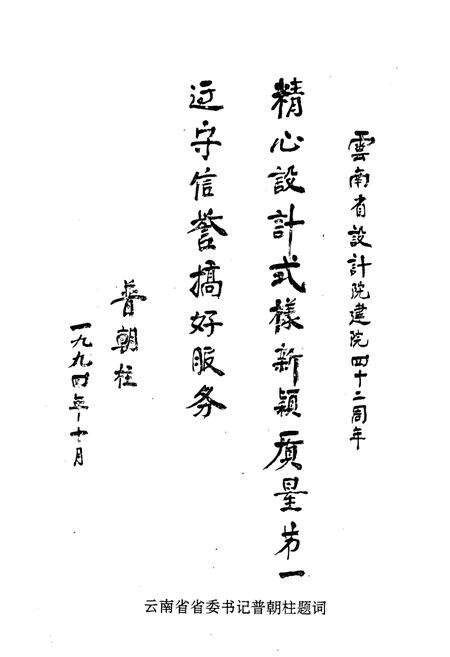 雲南省設計院建院四十二周年
精心設計式樣新穎质量第一
遵守信誉搞好服务
普朝柱
一九九四年十月
云南省省委书记普朝柱题词